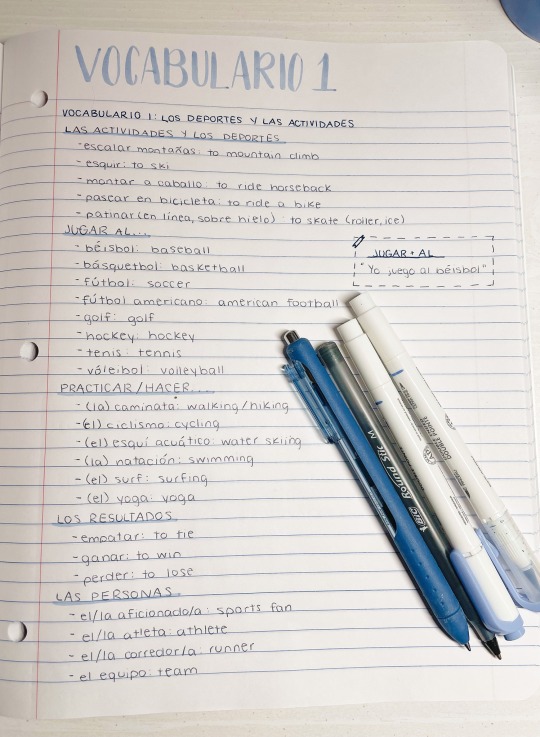 VOCABULARIO 1
VOCABULARIO 1: LOS DEPORTES Y LAS ACTIVIDADES
LAS ACTIVIDADES Y LOS DEPORTES
- escalar montañas: to mountain climb
- esquir: to ski
- montar a caballo: to ride horseback
- pascar en bicicleta: to ride a bike
- patinar (en línea, sobre hielo): to skate (roller, ice)
JUGAR AL...
- béisbol: baseball
- básquetbol: basketball
- fútbol: soccer
- fútbol americano: american football
- golf: golf
- hockey: hockey
- tenis: tennis
- vóleibol: volleyball
JUGAR + AL
"Yo juego al béisbol"
PRACTICAR/HACER...
- (la) caminata: walking/hiking
- (el) ciclismo: cycling
- (el) esquí acuático: water skiing
- (la) natación: swimming
- (el) surf: surfing
- (el) yoga: yoga
LOS RESULTADOS
- empatar: to tie
- ganar: to win
- perder: to lose
LAS PERSONAS
- el/la aficionado/a: sports fan
- el/la atleta: athlete
- el/la corredor/a: runner
- el equipo: team
BIC Round Stic M